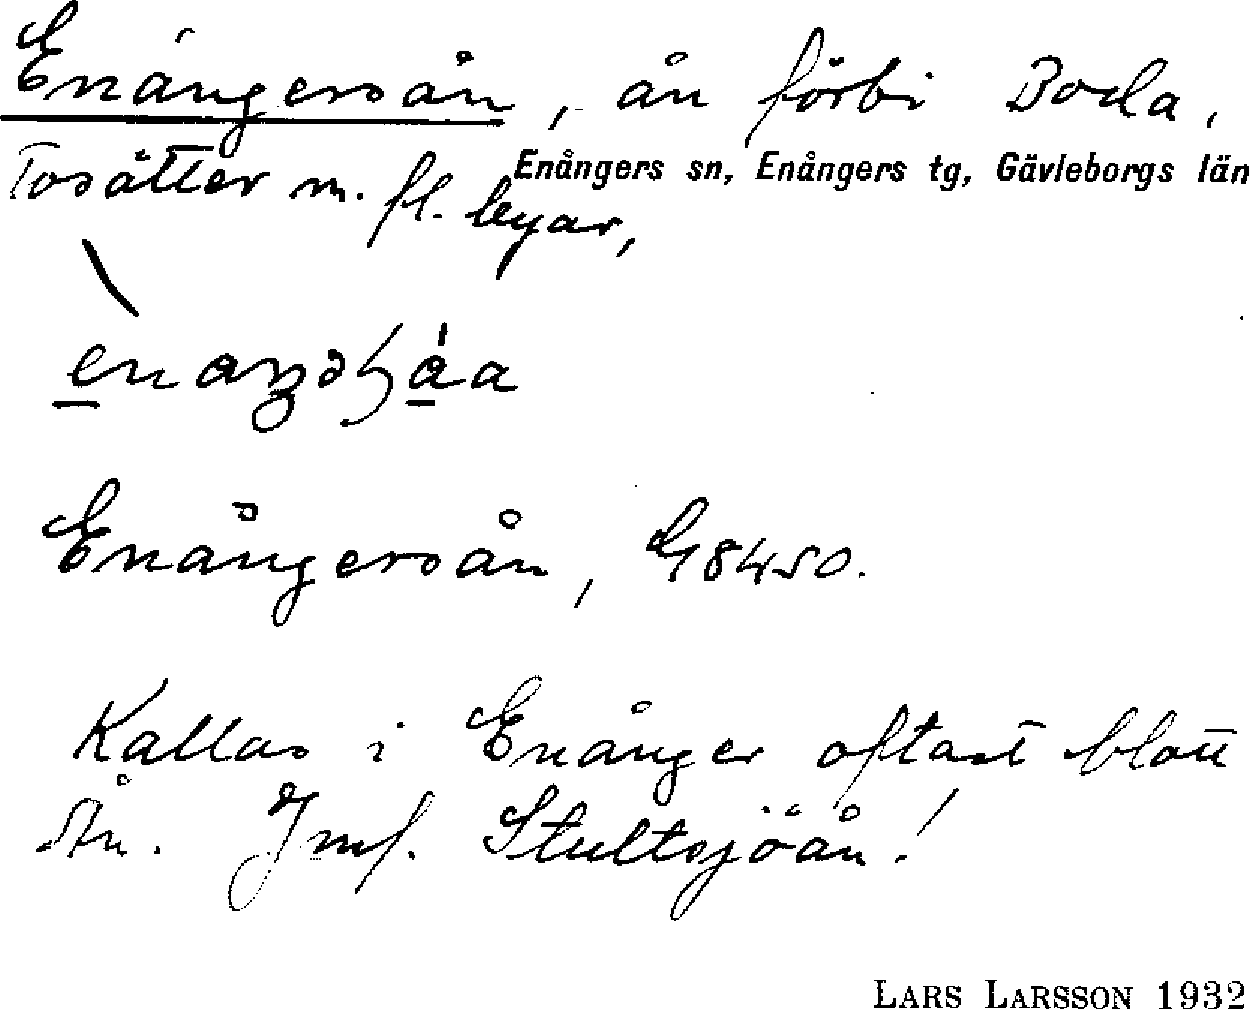 Enångersån, ån förbi Boda,
Tosätter m. fl. byar,
Enångers sn, Enångers tg, Gävleborgs län
Enångersån, G 8450.
Kallas i Enånger oftast blott
Ån. Jmf. Stultsjöån!
LARS LARSSON 1932